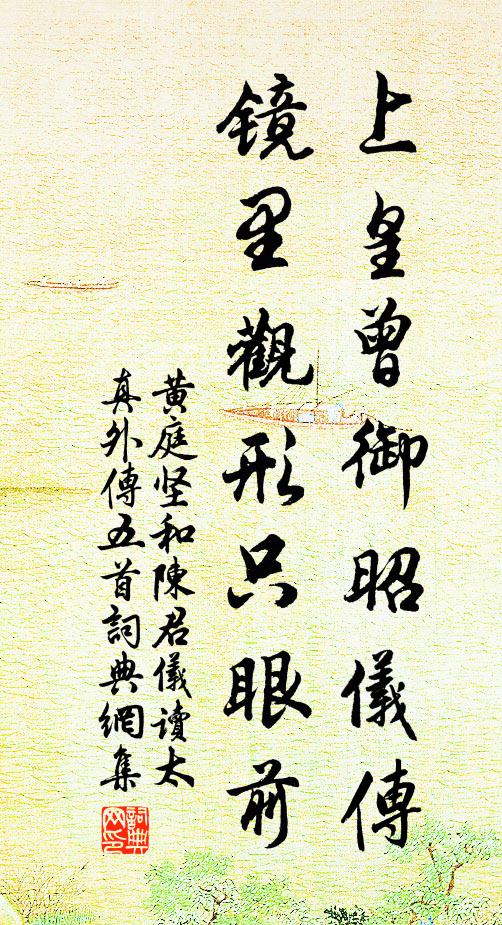 上皇曾御昭儀傳
镜里觀形只眼前
黄庭坚和陳君儀讀太
真外傳五首詞典網集
詞典
网印